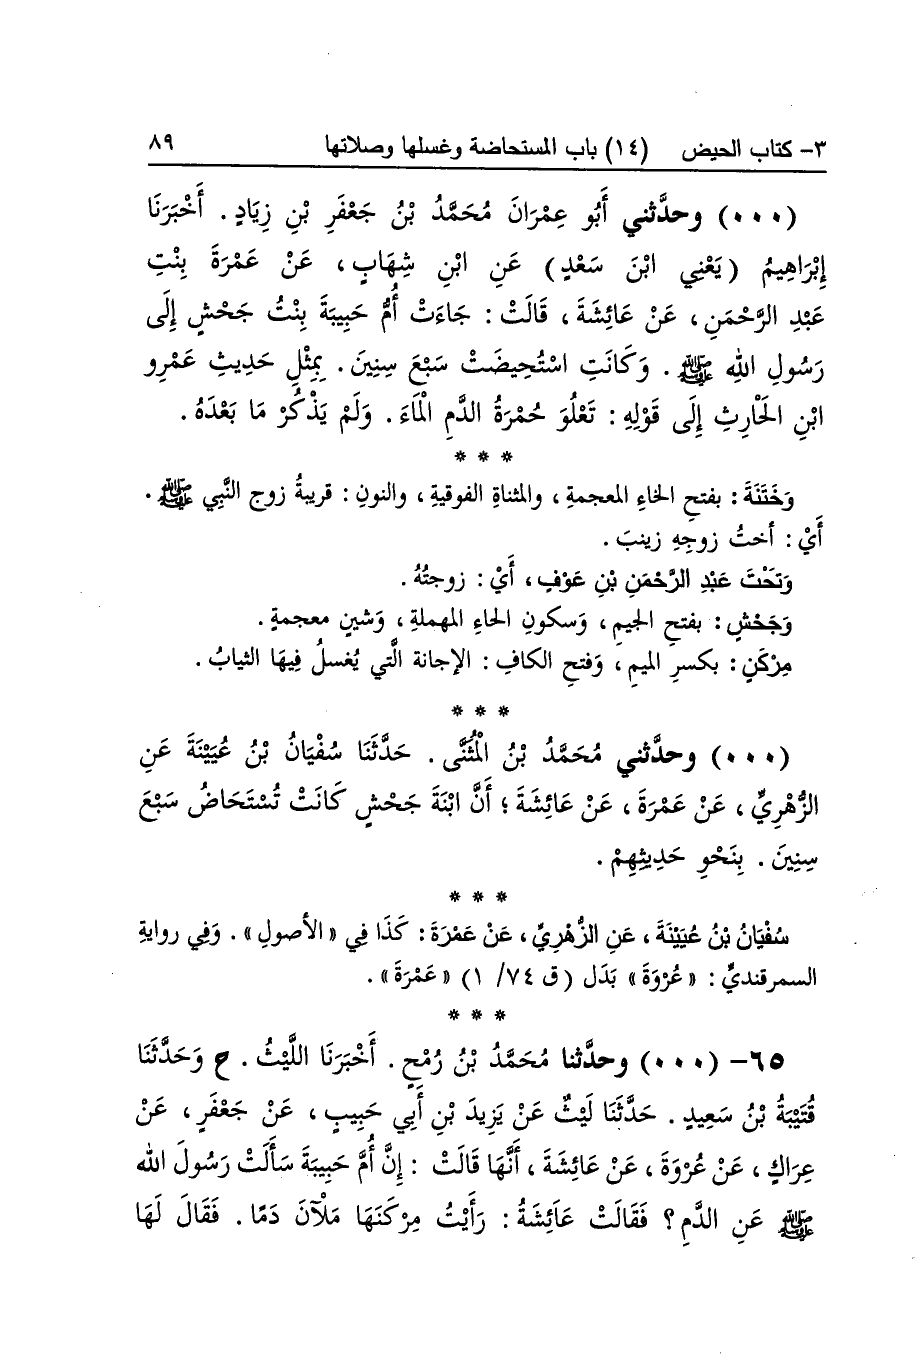 ٣- كتاب الحيض (١٤) باب المستحاضة وغسلها وصلاتها ٨٩
(٠٠٠) وحدَّثني أَبُو عِمْرَانَ مُحَمَّدُ بْنُ جَعْفَرِ بْنِ زِيَادٍ . أَخْبَرَنَا
إِبْرَاهِيمُ (يَعْنِي ابْنَ سَعْدٍ) عَنِ ابْنِ شِهَابٍ ، عَنْ عَمْرَةَ بِنْتِ
عَبْدِ الرَّحْمَنِ ، عَنْ عَائِشَةَ ، قَالَتْ : جَاءَتْ أُمُّ حَبِيبَةَ بِنْتُ جَحْشٍ إِلَى
رَسُولِ اللهِ ﷺ . وَكَانَتِ اسْتُحِيضَتْ سَبْعَ سِنِينَ . بِمِثْلِ حَدِيثِ عَمْرِو
ابْنِ الْحَارِثِ إِلَى قَوْلِهِ : تَعْلُوَ حُمْرَةُ الدَّمِ الْمَاءَ . وَلَمْ يَذْكُرْ مَا بَعْدَهُ .
* * *
وَخَتَنَةَ : بفتحِ الخاءِ المعجمةِ ، والمثناةِ الفوقيةِ ، والنونِ : قريبةُ زوج النَّبي ﷺ .
أَيْ : أختُ زوجِهِ زينبَ .
وَتَحْتَ عَبْدِ الرَّحْمَنِ بْنِ عَوْفٍ ، أَيْ : زوجتُهُ .
وَجَحْشٍ : بفتحِ الجيمِ ، وَسكونِ الحاءِ المهملةِ ، وَشينٍ معجمةٍ .
مِرْكَنٍ : بكسرِ الميمِ ، وَفتحِ الكافِ : الإجانة الَّتي يُغسلُ فِيهَا الثيابُ .
* * *
(٠٠٠) وحدَّثني مُحَمَّدُ بْنُ الْمُثَنَّى . حَدَّثَنَا سُفْيَانُ بْنُ عُيَيْنَةَ عَنِ
الزُّهْرِيِّ ، عَنْ عَمْرَةَ ، عَنْ عَائِشَةَ ؛ أَنَّ ابْنَةَ جَحْشٍ كَانَتْ تُسْتَحَاضُ سَبْعَ
سِنِينَ . بِنَحْوِ حَدِيثِهِمْ .
* * *
سُفْيَانُ بْنُ عُيَيْنَةَ ، عَنِ الزُّهْرِيِّ ، عَنْ عَمْرَةَ : كَذَا فِي «الأصولِ» . وَفِي روايةِ
السمرقنديِّ : «عُرْوَةَ» بَدَل (ق ٧٤/ ١) «عَمْرَةَ» .
* * *
٦٥- (٠٠٠) وحدَّثنا مُحَمَّدُ بْنُ رُمْحٍ . أَخْبَرَنَا اللَّيْثُ . ح وَحَدَّثَنَا
قُتَيْبَةُ بْنُ سَعِيدٍ . حَدَّثَنَا لَيْثٌ عَنْ يَزِيدَ بْنِ أَبِي حَبِيبٍ ، عَنْ جَعْفَرٍ ، عَنْ
عِرَاكٍ ، عَنْ عُرْوَةَ ، عَنْ عَائِشَةَ ، أَنَّهَا قَالَتْ : إِنَّ أُمَّ حَبِيبَةَ سَأَلَتْ رَسُولَ الله
ﷺ عَنِ الدَّمِ ؟ فَقَالَتْ عَائِشَةُ : رَأَيْتُ مِرْكَنَهَا مَلْآنَ دَمًا . فَقَالَ لَهَا